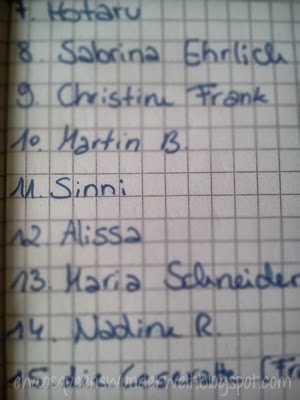 7. Hotaru
8. Sabrina Ehrlich
9. Christine Frank
10. Martin B.
11. Sinni
12. Alissa
13. Maria Schneider
14. Nadine R.
15. die